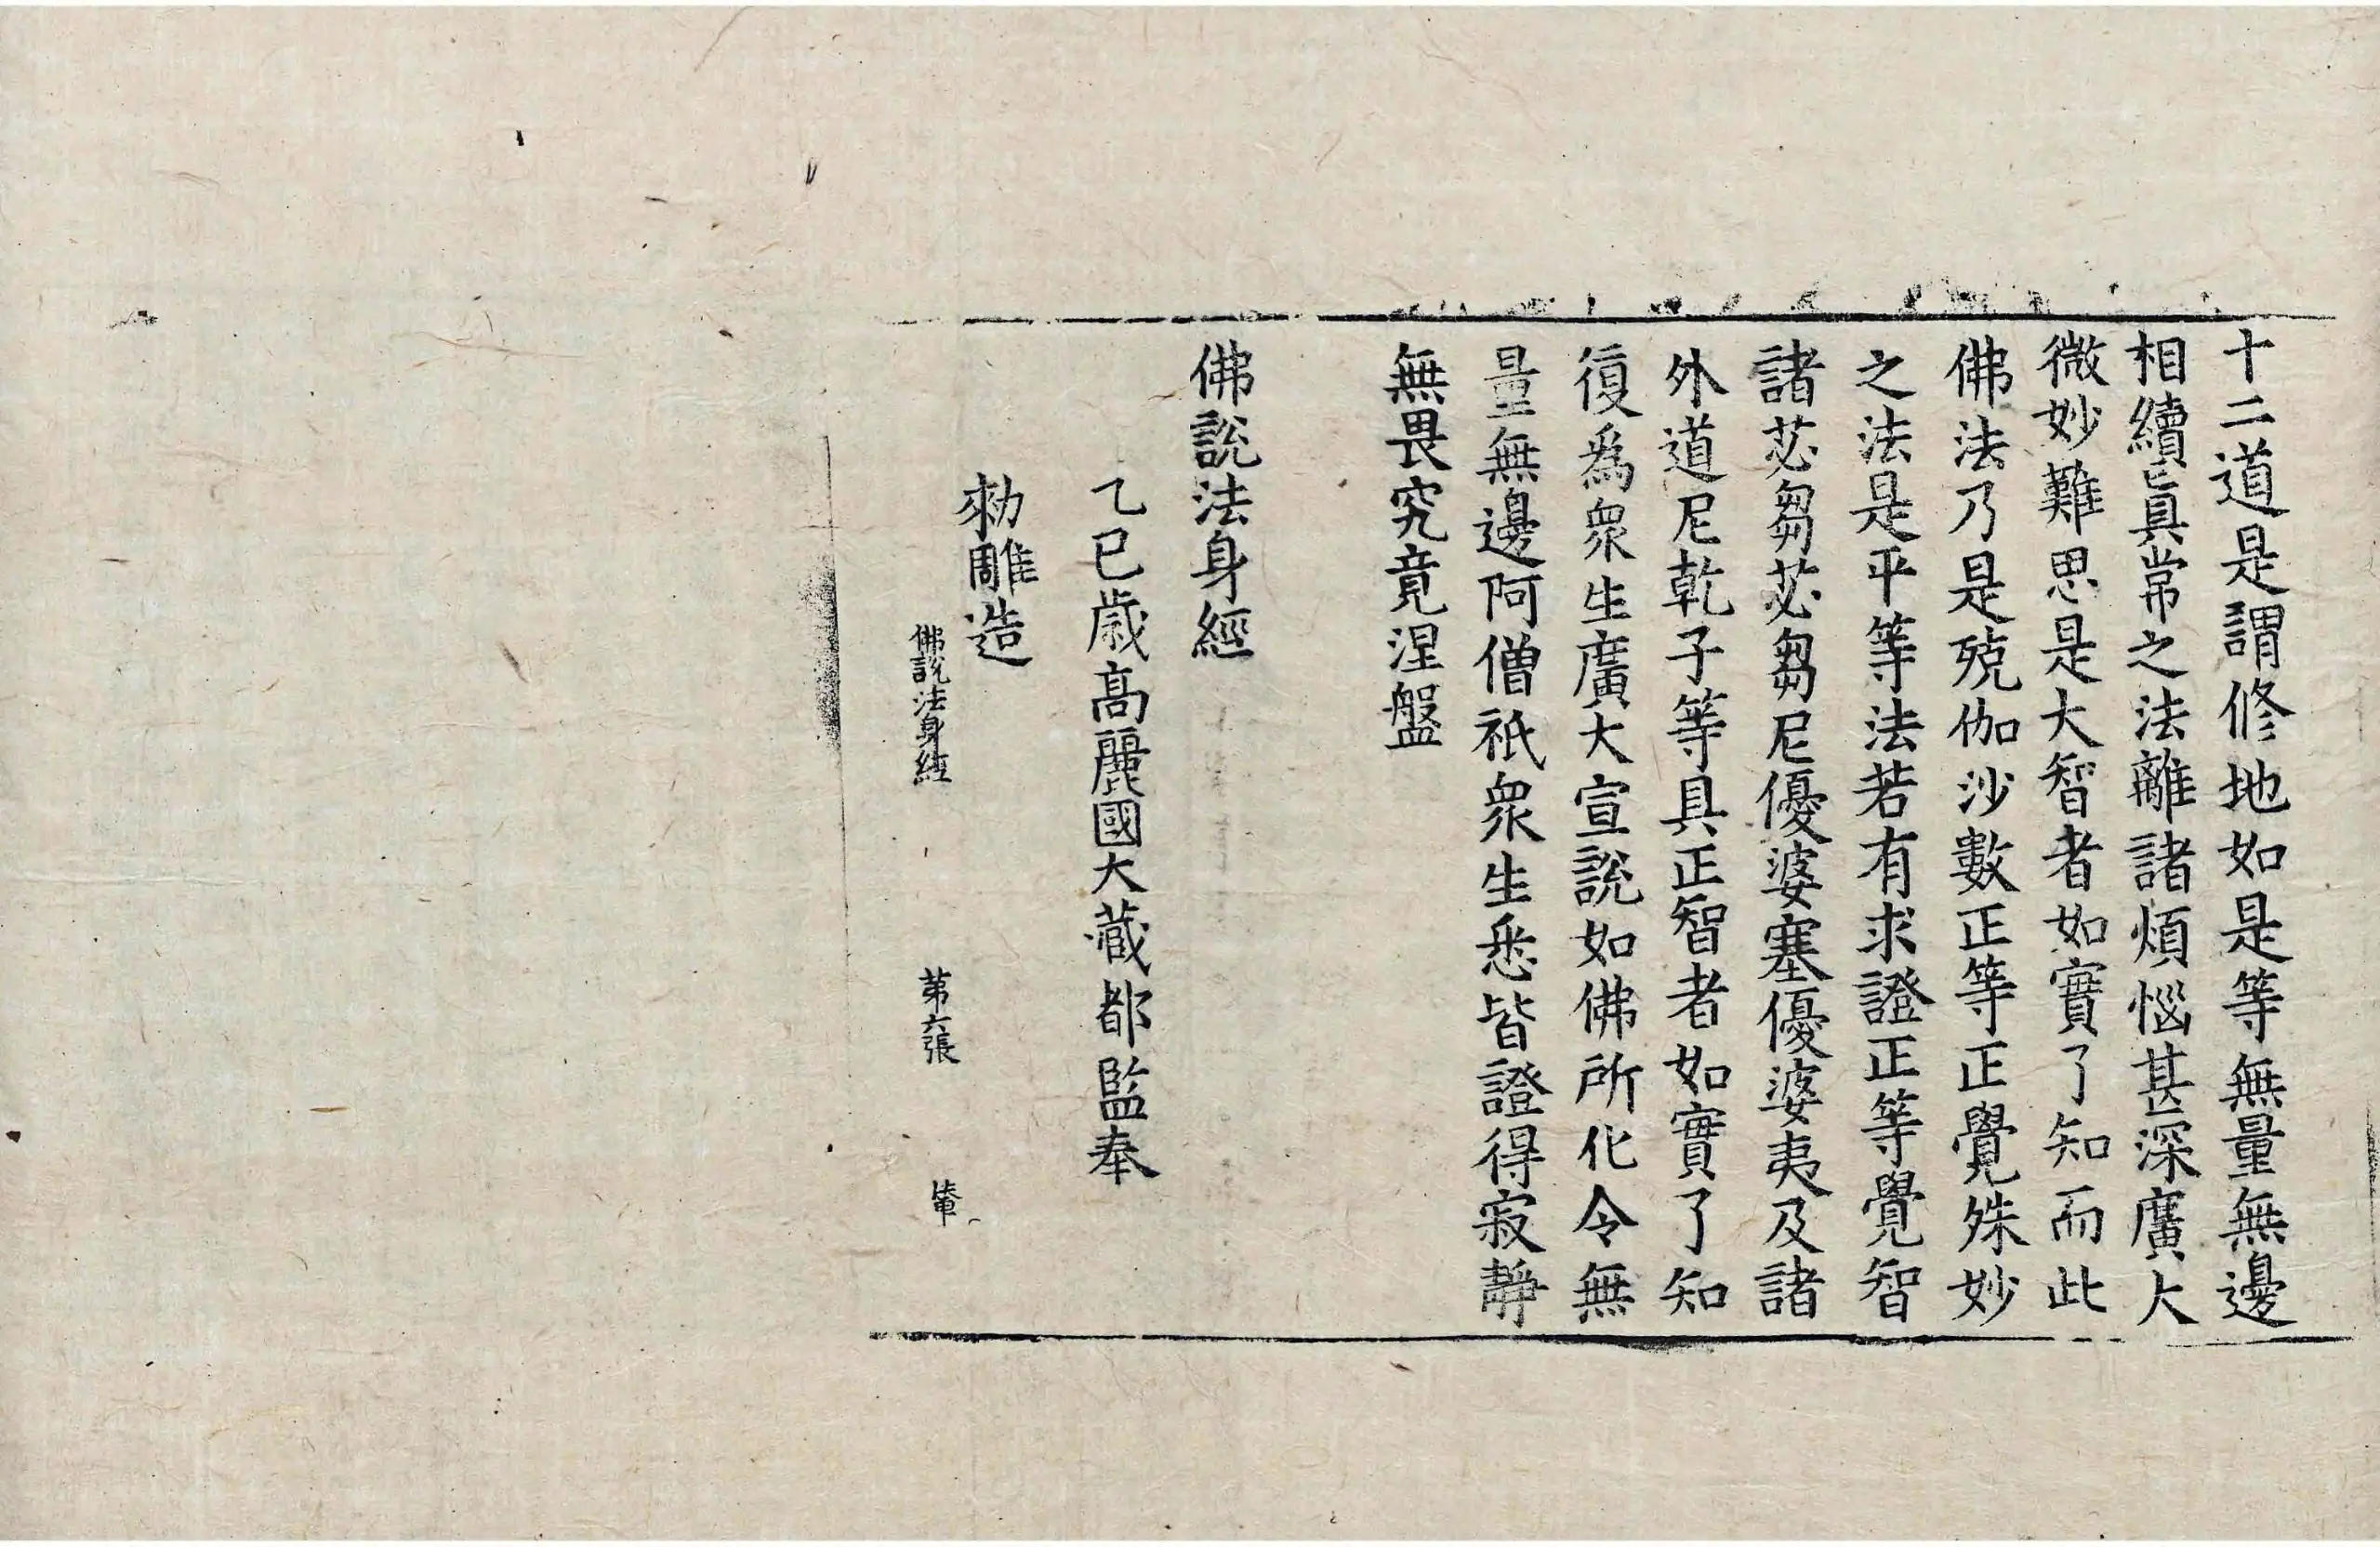 十二道是謂修地如是等無量無邊
相續眞常之法離諸煩惱甚深廣大
微妙難思是大智者如實了知而此
佛法乃是殑伽沙數正等正覺殊妙
之法是平等法若有求證正等覺智
諸苾芻苾芻尼優婆塞優婆夷及諸
外道尼乾子等具正智者如實了知
復爲衆生廣大宣說如佛所化令無
量無邊阿僧祇衆生悉皆證得寂靜
無畏究竟涅盤
佛說法身經
乙巳歲高麗國大藏都監奉
勅雕造
佛說法身經 第六張